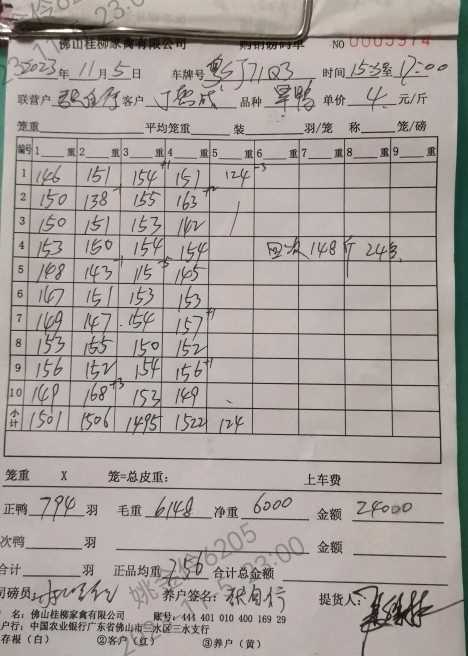 佛山桂柳家禽有限公司 购销磅码单 NO 0003974
2023年 11月 5日 车牌号 粤SJ71Q3 时间 15:3 至 17:00
联营户 客户 品种 旱鸭 单价 4 元/斤
笼重 平均笼重 装 羽/笼 称 笼/磅
编号 1 重 2 重 3 重 4 重 5 重 6 重 7 重 8 重 9 重
1 146 151 154 +1 151 124 -3
2 150 138 -1 155 163 +2
3 150 151 153 142
4 153 150 154 154 回次 148斤 24只
5 148 143 -1 115 -5 145
6 147 151 153 153
7 149 147 154 157 +1
8 153 155 150 152
9 156 152 154 156 +1
10 149 168 +3 153 149
小计 1501 1506 1495 1522 124
笼重 X 笼=总皮重: 上车费
正鸭 794 羽 毛重 6148 净重 6000 金额 24000
次鸭 羽 金额
合计 羽 正品均重 7.56 合计总金额
司磅员: 养户签名: 提货人:
名:佛山桂柳家禽有限公司 账号:444 401 010 400 169 29
行:中国农业银行广东省佛山市三水区三水支行
存根(白) ②客户(红) ③养户(黄)